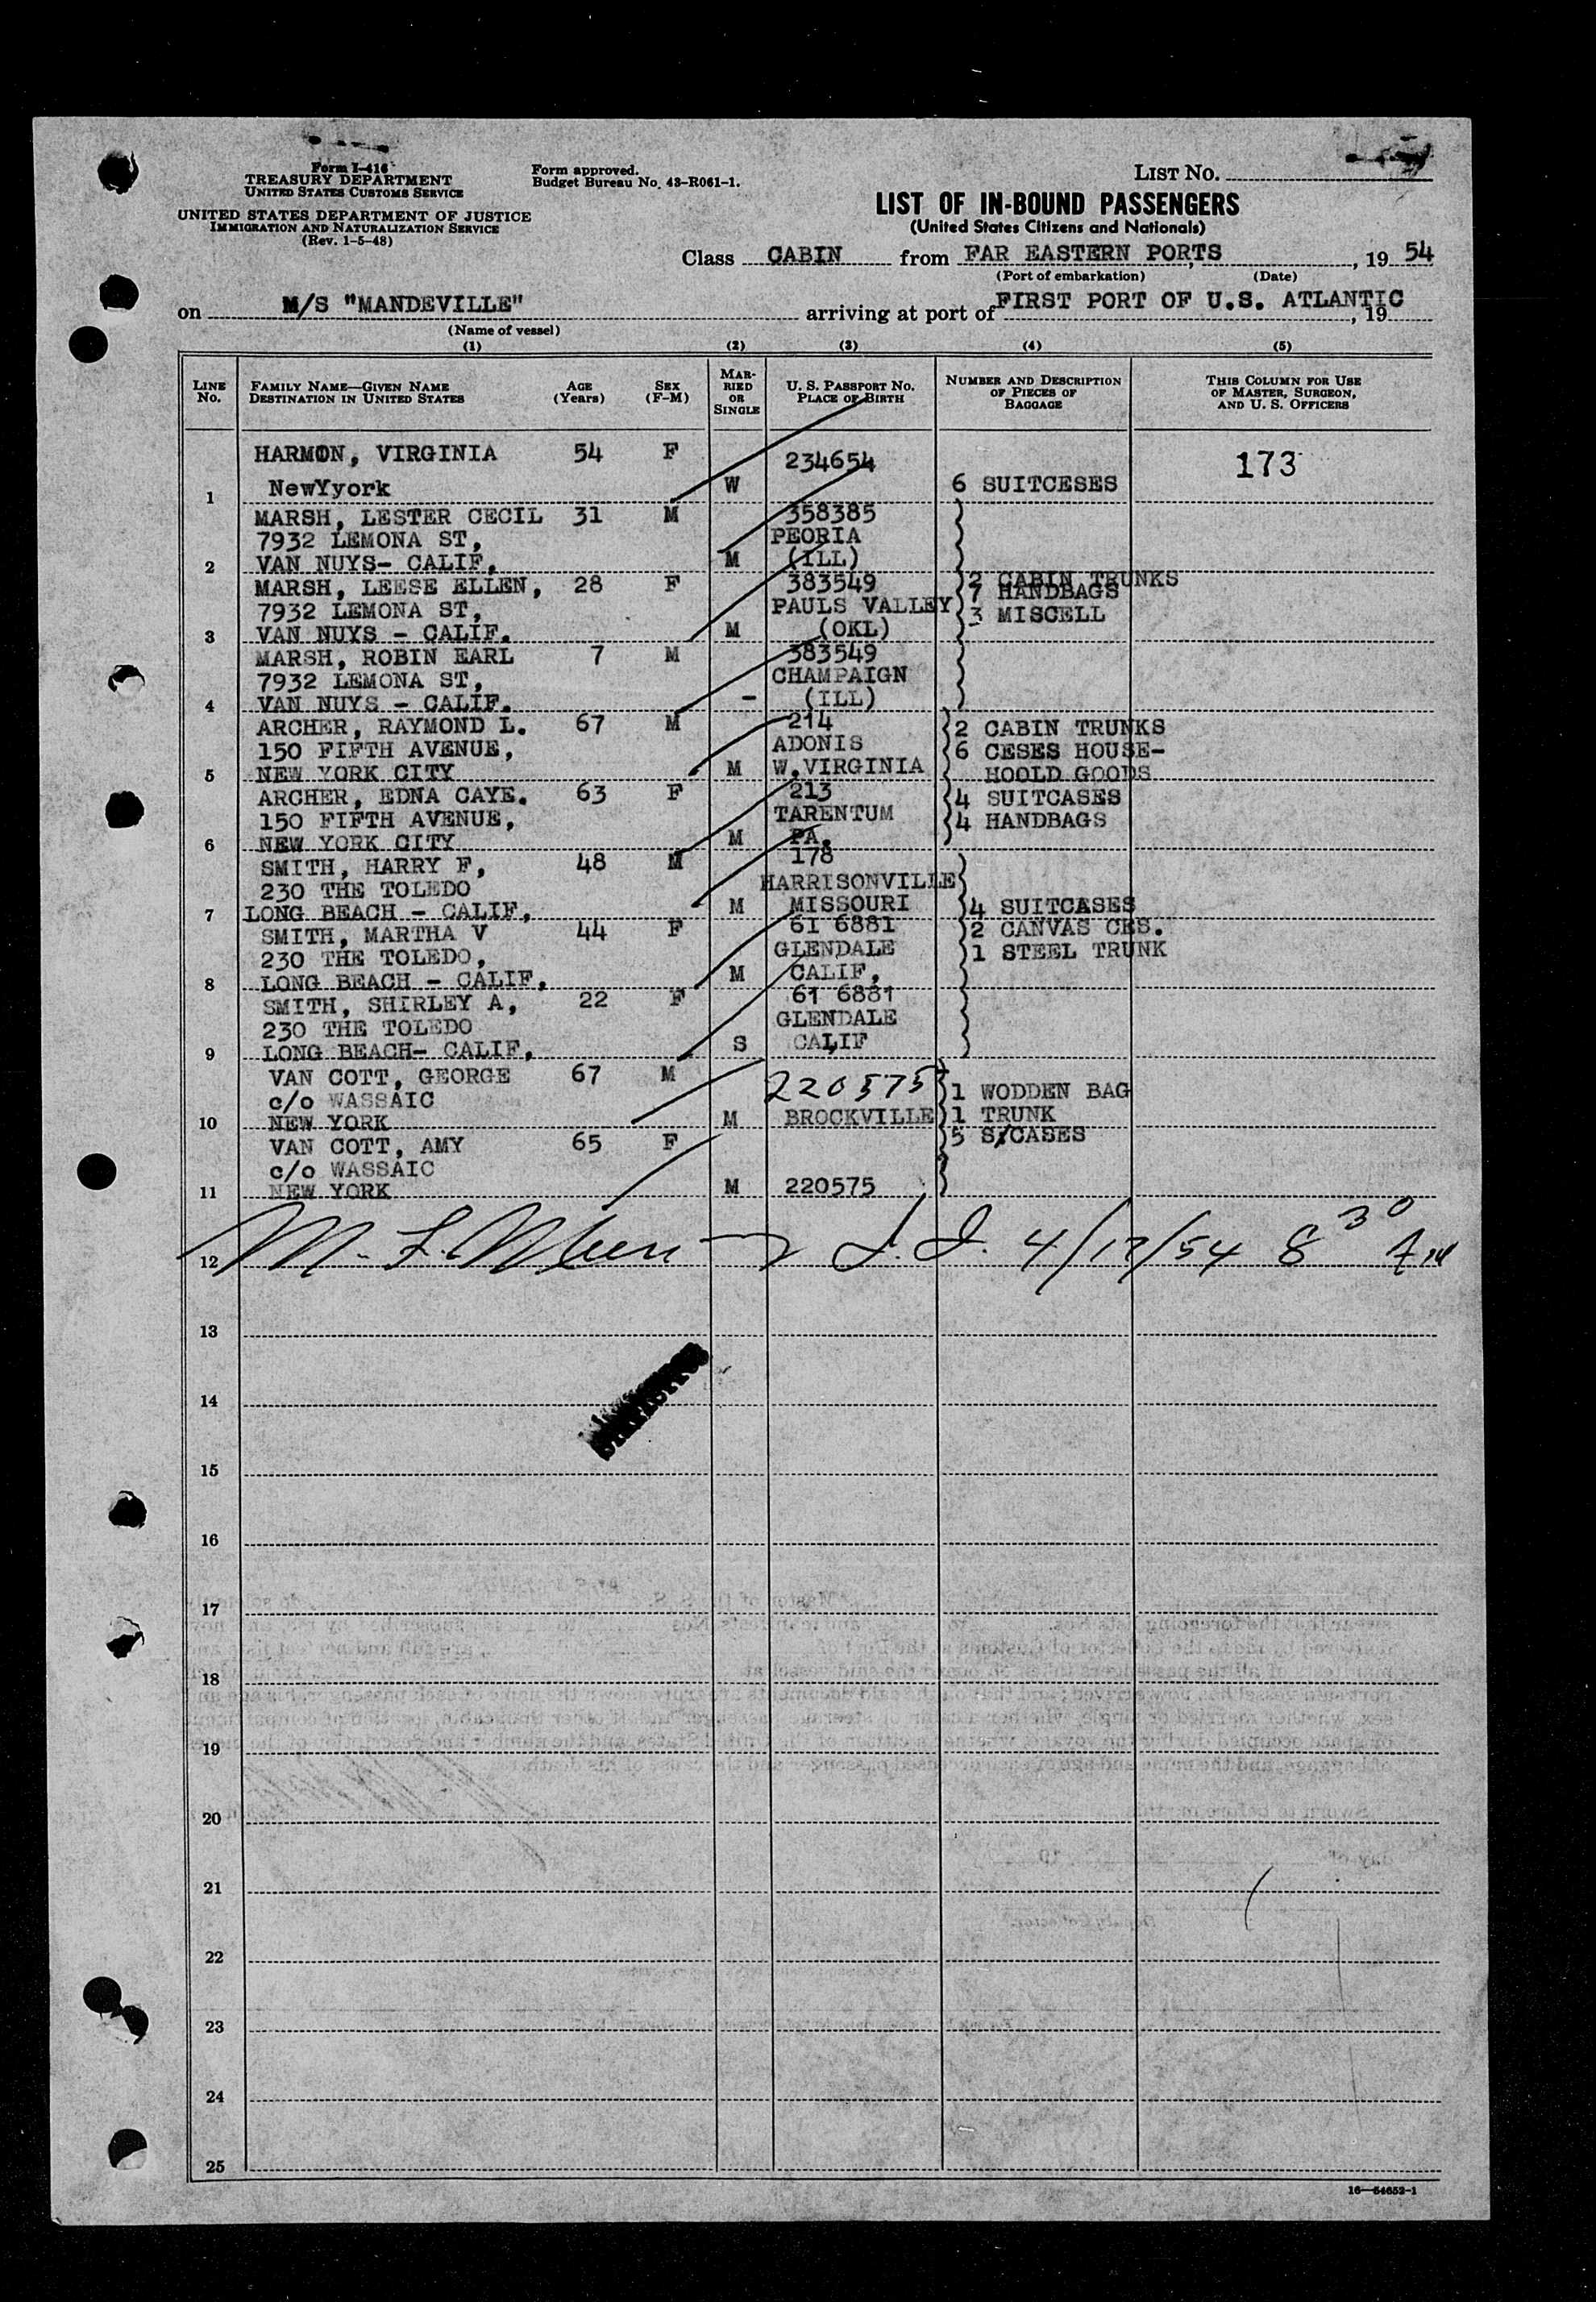 Form I-416
TREASURY DEPARTMENT
UNITED STATES CUSTOMS SERVICE
Form approved.
Budget Bureau No. 43-R061-1.
LIST NO.
UNITED STATES DEPARTMENT OF JUSTICE
IMMIGRATION AND NATURALIZATION SERVICE
(Rev. 1-5-48)
LIST OF IN-BOUND PASSENGERS
(United States Citizens and Nationals)
Class CABIN from FAR EASTERN PORTS, 19 54
(Port of embarkation) (Date)
on M/S "MANDEVILLE" arriving at port of FIRST PORT OF U.S. ATLANTIC, 19
(Name of vessel)
(1) (2) (3) (4) (5)
LINE No. FAMILY NAME—GIVEN NAME DESTINATION IN UNITED STATES AGE (Years) SEX (F-M) MARRIED OR SINGLE U. S. PASSPORT NO. PLACE OF BIRTH NUMBER AND DESCRIPTION OF PIECES OF BAGGAGE THIS COLUMN FOR USE OF MASTER, SURGEON, AND U. S. OFFICERS
HARMON, VIRGINIA 54 F 234654 173
1 NewYyork W 6 SUITCESES
MARSH, LESTER CECIL 31 M 358385
7932 LEMONA ST, PEORIA
2 VAN NUYS- CALIF, M (ILL)
MARSH, LEESE ELLEN, 28 F 383549 2 CABIN TRUNKS
7 HANDBAGS
7932 LEMONA ST, PAULS VALLEY 3 MISCELL
3 VAN NUYS - CALIF. M (OKL)
MARSH, ROBIN EARL 7 M 383549
7932 LEMONA ST, CHAMPAIGN
4 VAN NUYS - CALIF. - (ILL)
ARCHER, RAYMOND L. 67 M 214 2 CABIN TRUNKS
150 FIFTH AVENUE, ADONIS 6 CESES HOUSE-
5 NEW YORK CITY M W.VIRGINIA HOOLD GOODS
ARCHER, EDNA CAYE. 63 F 213 4 SUITCASES
150 FIFTH AVENUE, TARENTUM 4 HANDBAGS
6 NEW YORK CITY M PA.
SMITH, HARRY F, 48 M 178
230 THE TOLEDO HARRISONVILLE
7 LONG BEACH - CALIF, M MISSOURI 4 SUITCASES
SMITH, MARTHA V 44 F 61 6881 2 CANVAS CES.
230 THE TOLEDO, GLENDALE 1 STEEL TRUNK
8 LONG BEACH - CALIF, M CALIF,
SMITH, SHIRLEY A, 22 F 61 6881
230 THE TOLEDO GLENDALE
9 LONG BEACH- CALIF, S CALIF
VAN COTT, GEORGE 67 M 220575 1 WODDEN BAG
c/o WASSAIC
10 NEW YORK M BROCKVILLE 1 TRUNK
VAN COTT, AMY 65 F 5 S/CASES
c/o WASSAIC
11 NEW YORK M 220575
12 M. F. 4/17/54 8 30 AM
13
14
15
16
17
18
19
20
21
22
23
24
25
16—54652-1